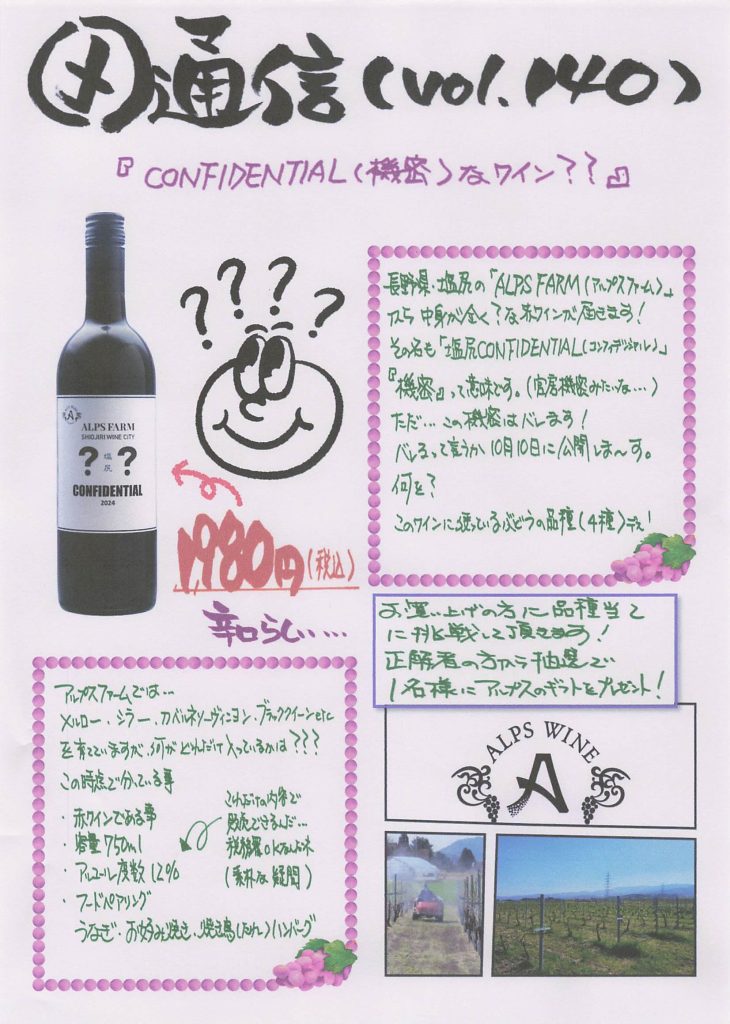 ㋱通信(vol.140)
『CONFIDENTIAL(機密)なワイン??』
????
長野県・塩尻の「ALPS FARM(アルプスファーム)」
から中身が全く?な赤ワインが届きます!
その名も「塩尻CONFIDENTIAL(コンフィデンシャル)」
『機密』って意味です。(官房機密みたいな…)
ただ…この機密はバレます!
バレるって言うか10月10日に公開しま〜す。
何を?
このワインに使っているぶどうの品種(4種)デス!
ALPS FARM
SHIOJIRI WINE CITY
?塩尻?
CONFIDENTIAL
2024
1,980円(税込)
辛口らしい…
お買い上げの方に品種当て
に挑戦して頂きます!
正解者の方から抽選で
1名様にアルプスのギフトをプレゼント!
アルプスファームでは…
メルロー・シラー・カベルネソーヴィニヨン・ブラッククイーンetc
を育てていますが、何がどれだけ入っているかは???
この時点で分っている事
・赤ワインである事
・容量750ml
・アルコール度数12%
・フードペアリング
うなぎ・お好み焼き・焼き鳥(たれ)ハンバーグ
これだけの内容で
販売できるんだ…
税務署OKなんだネ
(素朴な疑問)
ALPS WINE
A